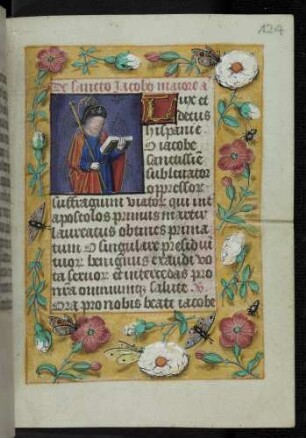 124
De sancto Jacobo maiore a
Lux et
decus
hispanie
O iacobe
sanctissie
subleuator
oppressor
suffragium viator qui int
apostolos primus martir
laureatus obtines prima
tum O singulare presidiu
tuor benignus exaudi vo
ta seruor et intercedas pro
nra omniumq salute V
Ora pro nobis beate iacobe